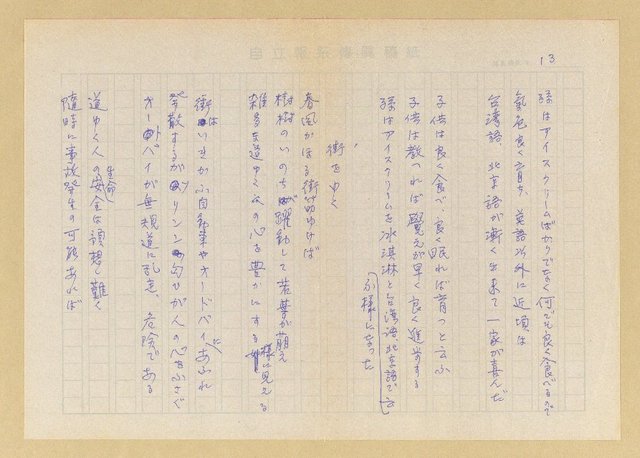 13
孫はアイスクリームばかりでなく何でも良く食べるので
氣色良く育ち、英語以外に近頃は
台湾語、北京語が漸く出来て一家が喜んだ
子供は良く食べ、良く眠れば育つと云ふ
子供は教つれば覺えが早く良く進歩する
孫はアイスクリームを冰淇淋と台湾語、北京語で云
ふ様になった
街をゆく
春風かほる街ゆけば
樹樹のいのち躍動して若芽が萌え
雑多な道ゆく人の心を豊かにする様に見える
街はいきかふ自動車やオートバイにあふれ
発散するガソリンの匂ひが人の心をふさぐ
オートバイが無規道に乱走、危険である
道ゆく人の生命安全は預想し難く
随時に事故発生の可能あれば
自立報系傳真稿紙